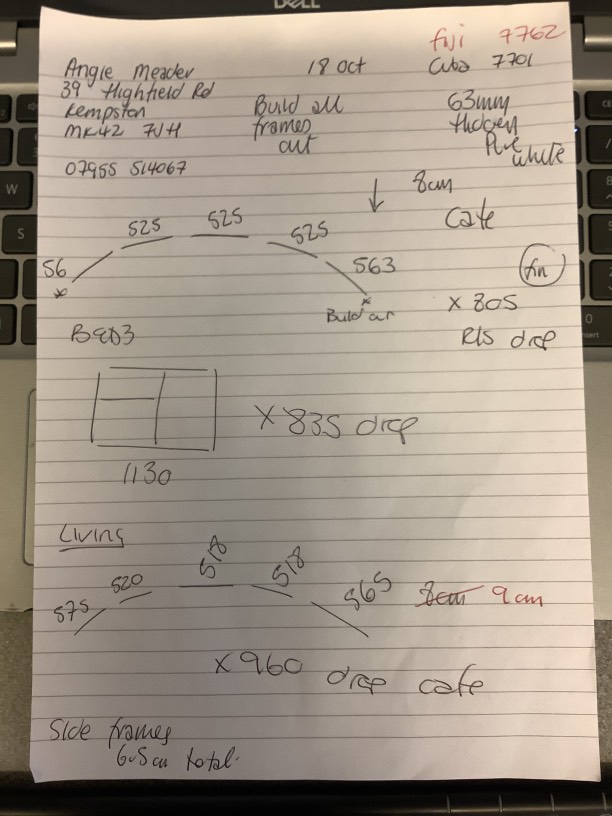 DELL
fuji 7762
Angie Meader
18 Oct
Cuba 7701
39 Highfield Rd
Kempston
Build all
63mm
MK42 7JH
frames
Hidden
out
Pure white
07955 514067
8cm
525
525
525
Cafe
56
563
fin
Build out
x 805
BED3
R/S drop
x 835 drop
1130
Living
518
518
520
565
575
8cm 9cm
x 960 drop cafe
Side frames
6.5cm total.